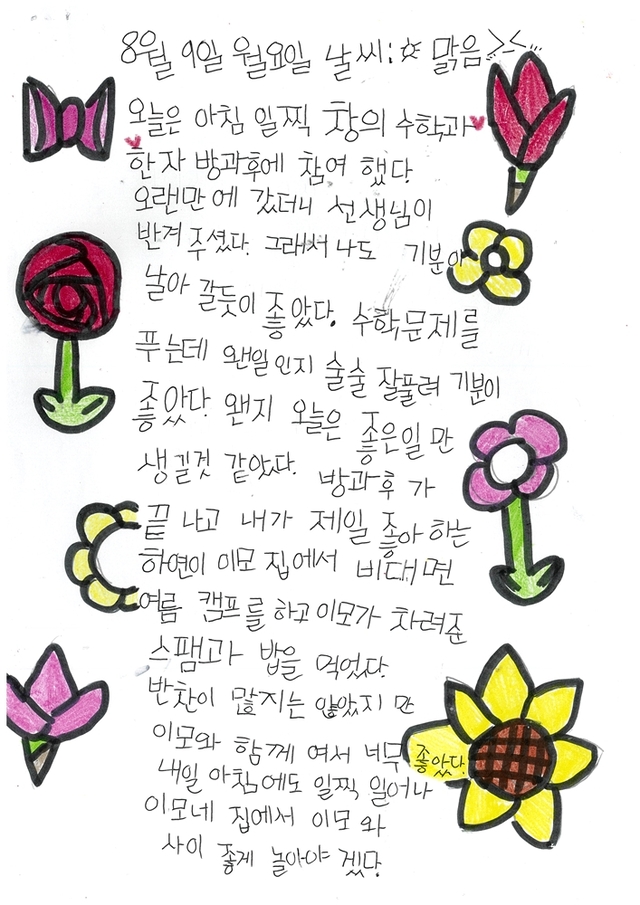 8월 9일 월요일 날씨: ☼ 맑음 >-<...
오늘은 아침 일찍 창의 수학과
한자 방과후에 참여 했다.
오랜만에 갔더니 선생님이
반겨 주셨다. 그래서 나도 기분이
날아 갈듯이 좋았다. 수학문제를
푸는데 왠일인지 술술 잘풀려 기분이
좋았다. 왠지 오늘은 좋은일만
생길것 같았다. 방과후가
끝나고 내가 제일 좋아하는
하연이 이모 집에서 비대면
여름 캠프를 하고 이모가 차려준
스팸과 밥을 먹었다.
반찬이 많지는 않았지만
이모와 함께 여서 너무 좋았다.
내일 아침에도 일찍 일어나
이모네 집에서 이모와
사이 좋게 놀아야 겠다.